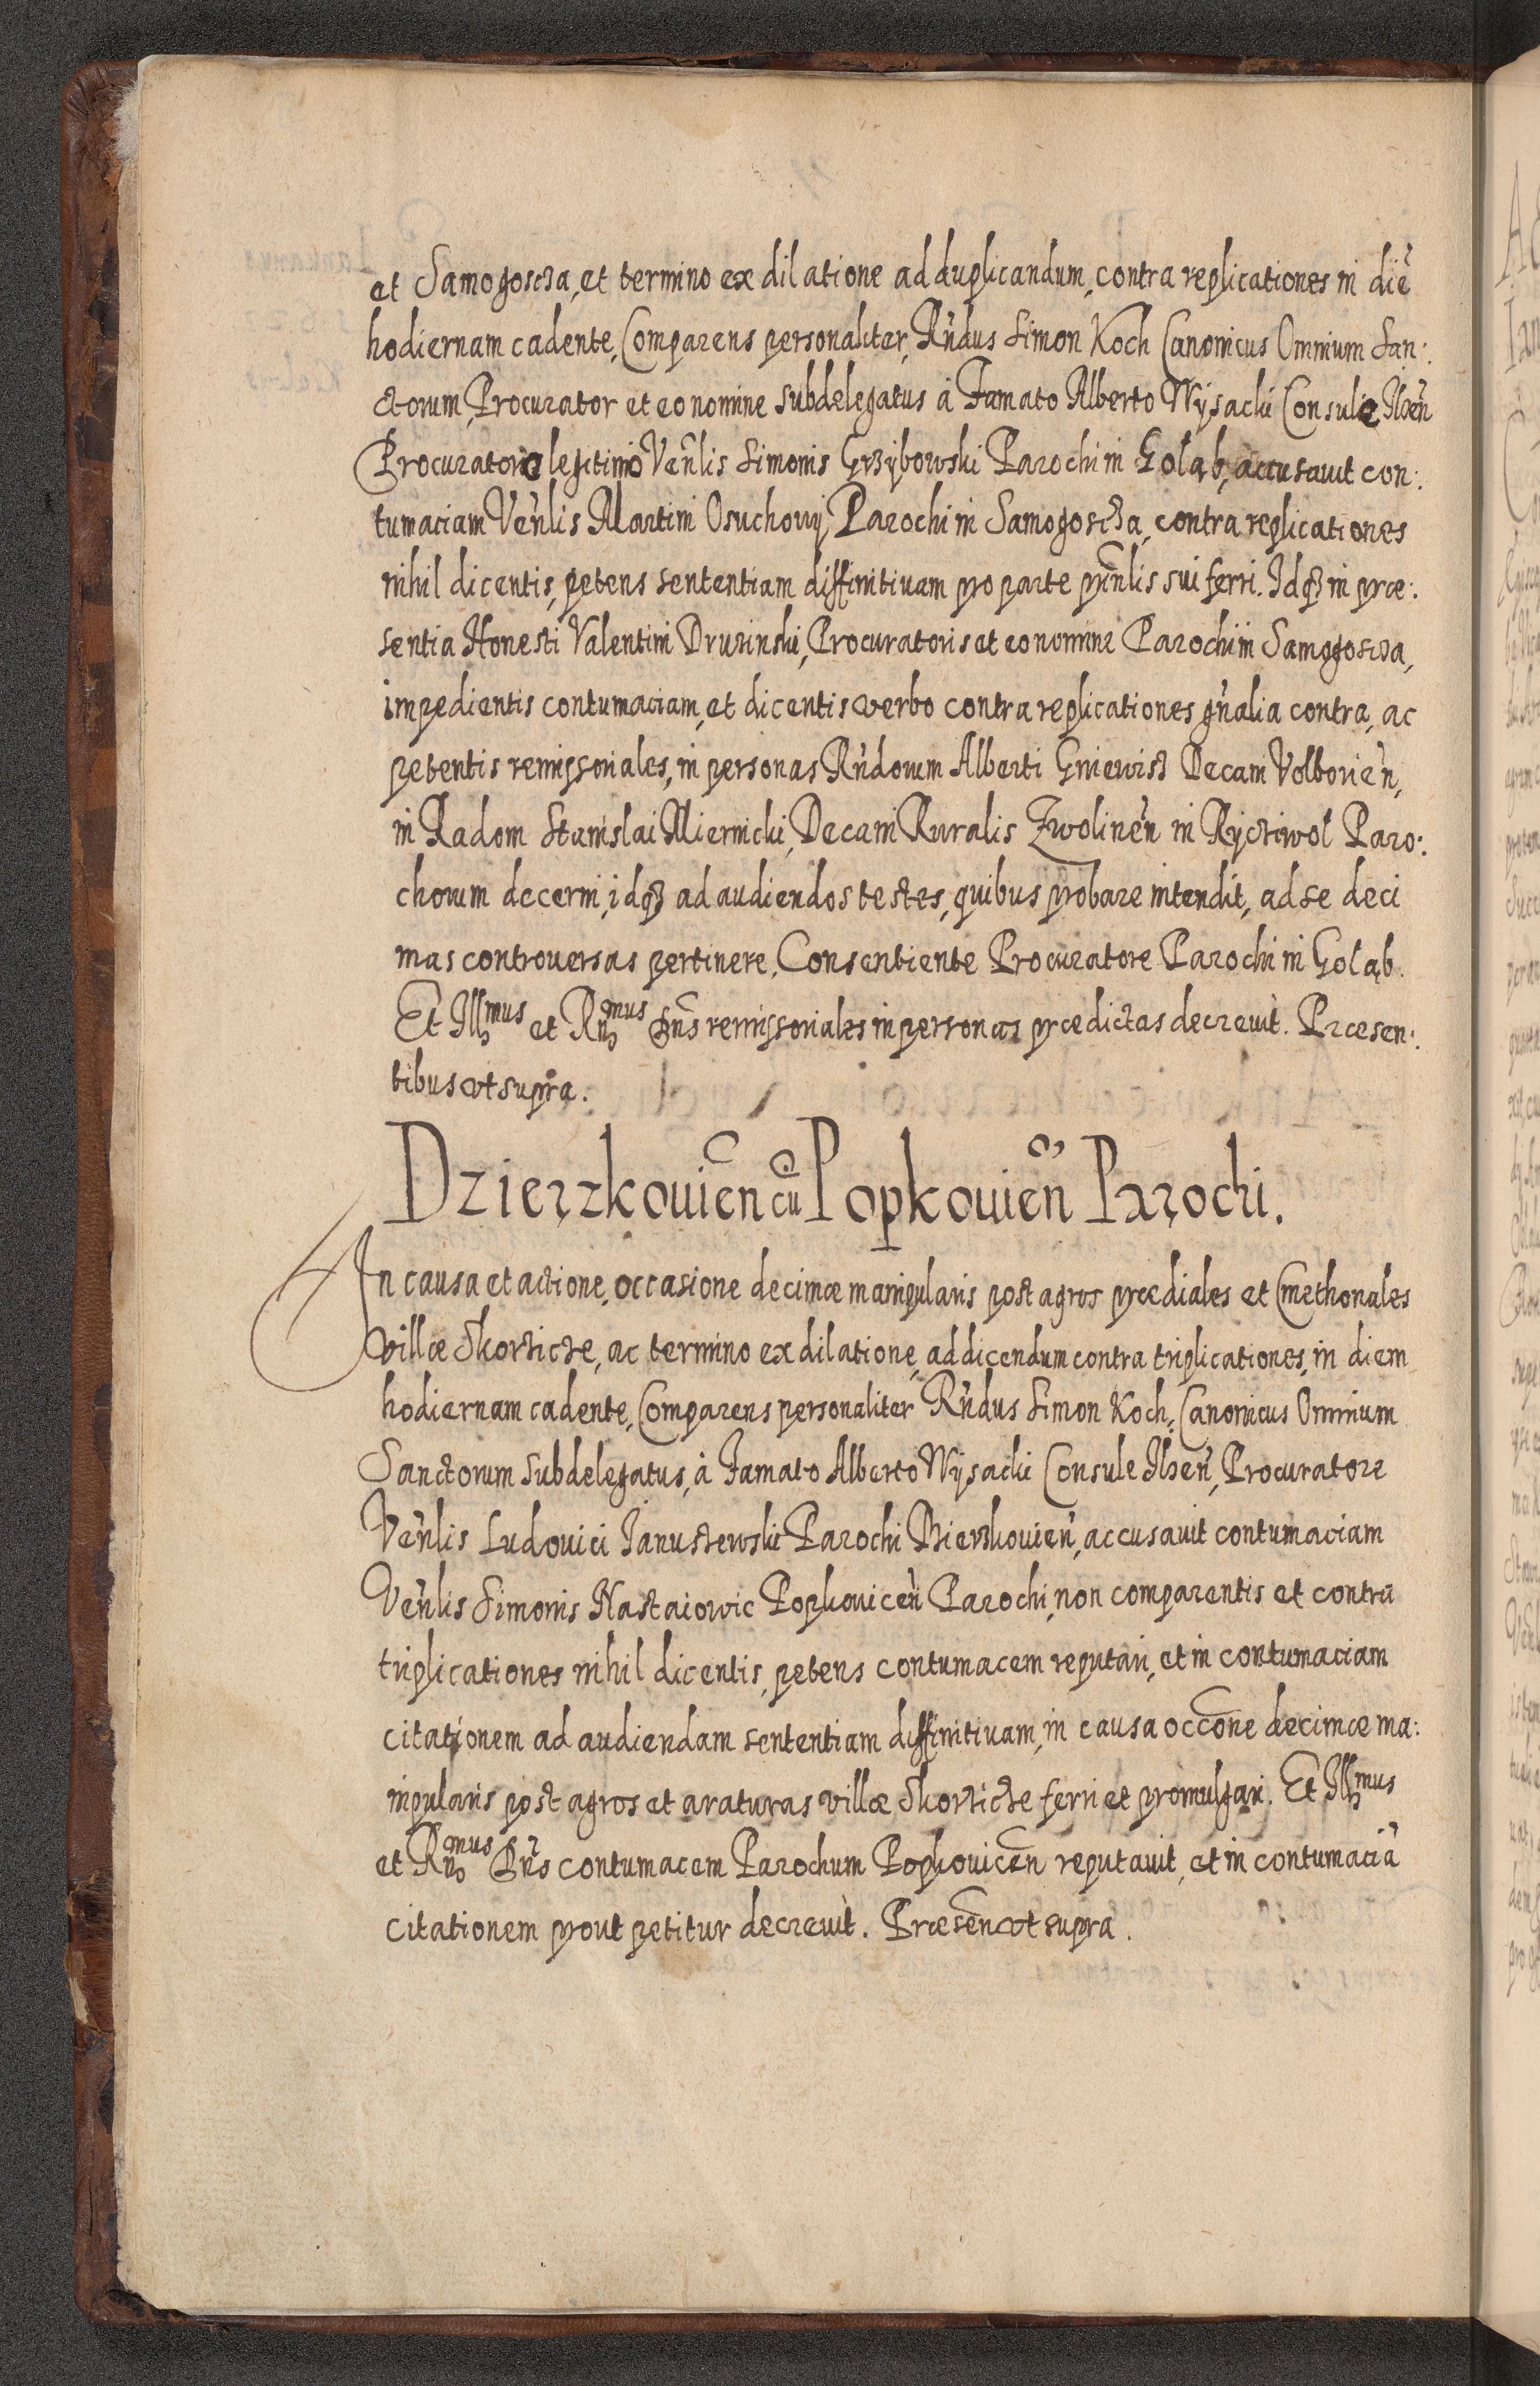 et Samogoscza, et termino ex dilatione ad duplicandum, contra replicationes in diē
hodiernam cadente, Comparens personaliter, Rn̄dus Simon Koch Canonicus Omnium San:
ctorum, Procurator et eo nomine subdelegatus à Famato Alberto Wÿsacki Consule Ilzēn
Procuratore legitimo Ven̄lis Simonis Grzÿbowski Parochi in Gołąb, accusauit con:
tumaciam Ven̄lis Martini Osuchowÿ, Parochi in Samogoscza, contra replicationes
nihil dicentis, petens sententiam diffinitiuam pro parte prin̄lis sui ferri. Idq₃ in præ:
sentia Honesti Valentini Druzinski, Procuratoris et eo nomine Parochi in Samogoscza,
impedientis contumaciam, et dicentis verbo contra replicationes gn̄alia contra, ac
petentis remissoriales, in personas Rn̄dorum Alberti Gniewisz Decani Volboriēn,
in Radom Stanislai Miernicki, Decani Ruralis Zwolinēn in Rycziwoł Paro:
chorum decerni, idq₃ ad audiendos testes, quibus probare intendit, ad se deci
mas controuersas pertinere, Consentiente Procuratore Parochi in Gołąb.
Et Illmus et Rn̄dmus Dn̄s remissoriales in personas prædictas decreuit. Præsen:
tibus vt supra.
Dzierzkouien̄ cū Popkouien̄ Parochi.
In causa et actione, occasione decimæ manipularis post agros prædiales et Cmethonales
villæ Skorzicze, ac termino ex dilatione, ad dicendum contra triplicationes, in diem
hodiernam cadente, Comparens personaliter Rn̄dus Simon Koch, Canonicus Omnium
Sanctorum Subdelegatus, à Famato Alberto Wÿsacki Consule Ilzēn, Procuratore
Ven̄lis Ludouici Januszewski Parochi Dzierzkouien̄, accusauit contumaciam
Ven̄lis Simonis Nastaiowic Popkouicēn Parochi, non comparentis et contra
triplicationes nihil dicentis, petens contumacem reputari, et in contumaciam
citationem ad audiendam sententiam diffinitiuam, in causa occōne decimæ ma:
nipularis post agros et araturas villæ Skorzicze ferri et promulgari. Et Illmus
et Rn̄dmus Dn̄s contumacem Parochum Popkouicēn reputauit, et in contumaciā
citationem prout petitur decreuit. Præsēn vt supra.